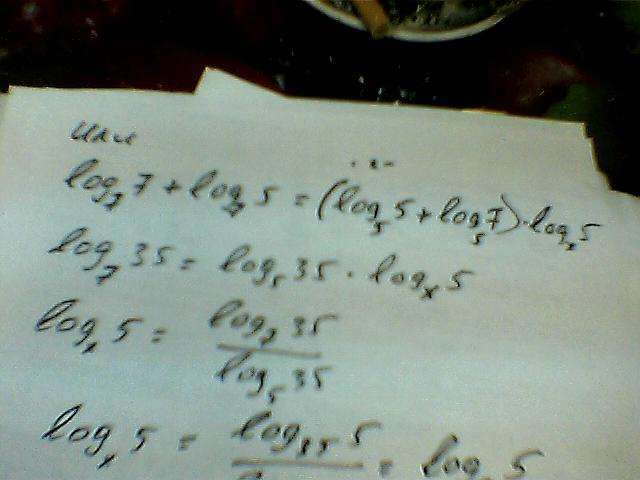 или
log₇ 7 + log₇ 5 = (log₅ 5 + log₅ 7) · logₓ 5
log₇ 35 = log₅ 35 · logₓ 5
logₓ 5 = log₇ 35 / log₅ 35
logₓ 5 = log₃₅ 5 = log 5